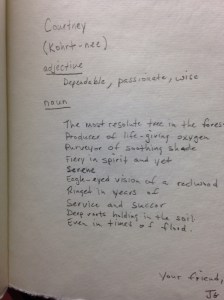 Courtney
(Kohrt-nee)
adjective
Dependable, passionate, wise
noun
The most resolute tree in the forest
Producer of life-giving oxygen
Purveyor of soothing shade
Fiery in spirit and yet
Serene
Eagle-eyed vision of a redwood
Ringed in years of
Service and succor
Deep roots holding in the soil
Even in times of flood.
Your friend,